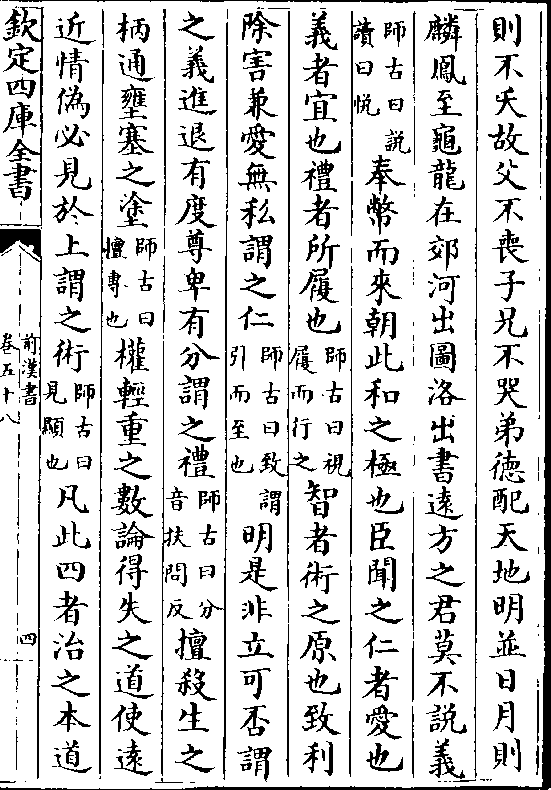 則不夭故父不喪子兄不哭弟德配天地明並日月則
麟鳳至龜龍在郊河出圖洛出書遠方之君莫不說義
師古曰說讀曰悅奉幣而來朝此和之極也臣聞之仁者愛也
義者宜也禮者所履也師古曰視履而行之智者術之原也致利
除害兼愛無私謂之仁師古曰致謂引而至也明是非立可否謂
之義進退有度尊卑有分謂之禮師古曰分音扶問反擅殺生之
柄通壅塞之塗師古曰擅專也權輕重之數論得失之道使遠
近情偽必見於上謂之術師古曰見顯也凡此四者治之本道
欽定四庫全書
前漢書
卷五十八
四